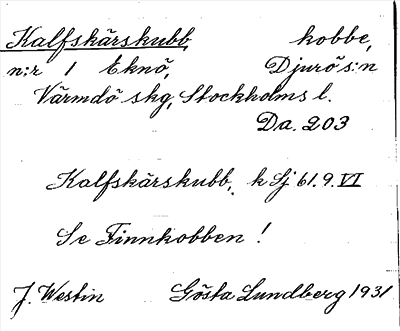 Kalfskärskubb, kobbe,
n:r 1 Eknö, Djurö s:n
Värmdö skg, Stockholms l.
Da. 203
Kalfskärskubb, k Sj 61.9.VI
Se Finnkobben!
J. Westin Gösta Lundberg 1931